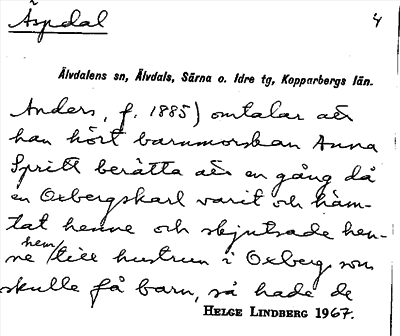 Äspdal
4
Älvdalens sn, Älvdals, Särna o. Idre tg, Kopparbergs län.
Anders, f. 1885) omtalar att
han hört barnmorskan Anna
Spritt berätta att en gång då
en Oxbergskarl varit och häm-
tat henne och skjutsade hen-
ne hem/till hustrun i Oxberg, som
skulle få barn, så hade de
HELGE LINDBERG 1967.